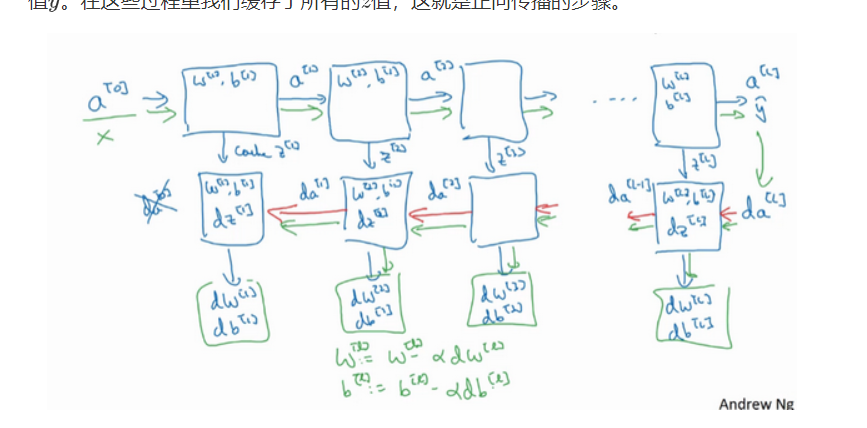 值y。在这些过程里我们缓存了所有的z值，这就是正向传播的步骤。
a^[0] w^[1], b^[1] a^[1] w^[2], b^[2] a^[2] .... w^[L] a^[L]
x b^[L] ŷ
cache z^[1] z^[2] z^[3] z^[L]
da^[0] w^[1], b^[1] da^[1] w^[2], b^[2] da^[2] da^[L-1] w^[L], b^[L] da^[L]
dz^[1] dz^[2] dz^[L]
dw^[1] dw^[2] dw^[3] dw^[L]
db^[1] db^[2] db^[3] db^[L]
w^[l] := w^[l] - αdw^[l]
b^[l] := b^[l] - αdb^[l]
Andrew Ng